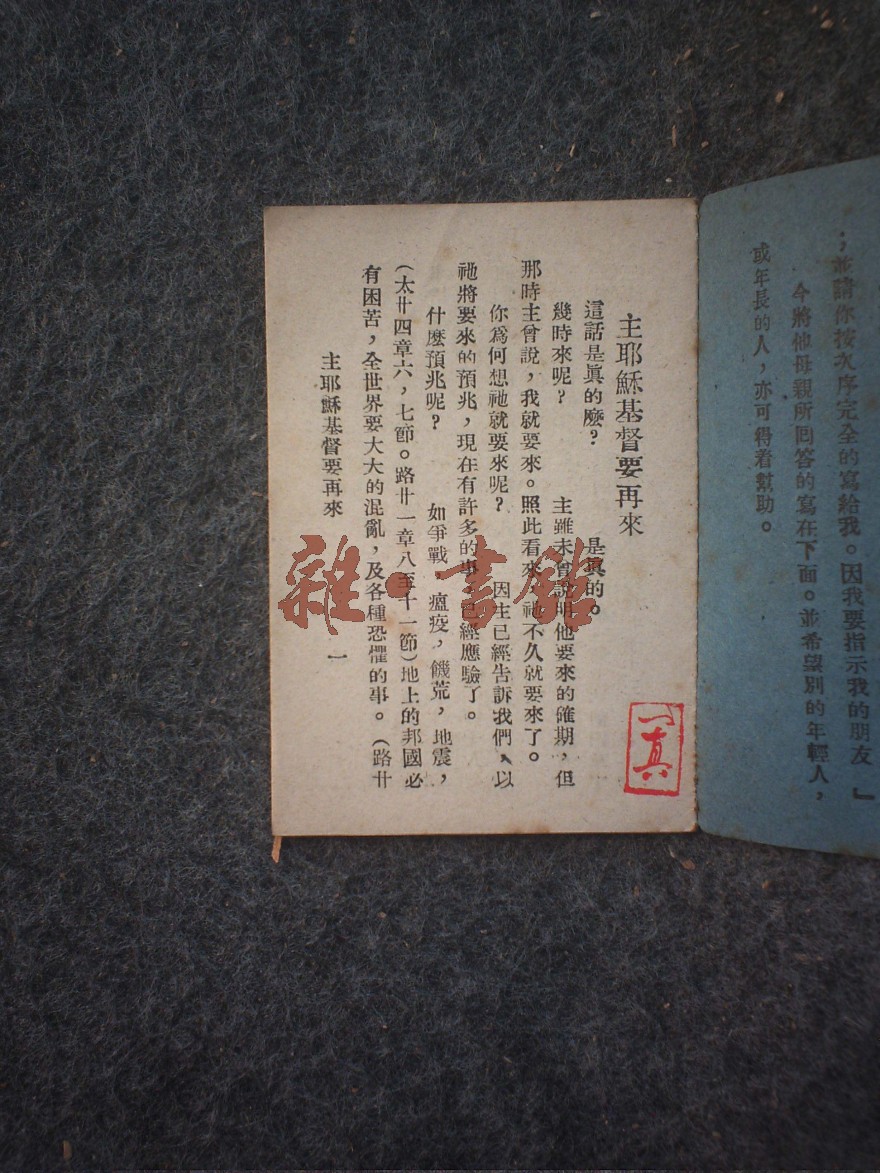 ；並請你按次序完全的寫給我。因我要指示我的朋友』
今將他母親所回答的寫在下面。並希望別的年輕人，
或年長的人，亦可得着幫助。
主耶穌基督要再來
這話是眞的麼？　是眞的。
幾時來呢？　主雖未曾說明他要來的確期，但
那時主曾說，我就要來。照此看來，祂不久就要來了。
你爲何想祂就要來呢？　因主已經告訴我們，以
祂將要來的預兆，現在有許多的事，已經應驗了。
什麼預兆呢？　如爭戰，瘟疫，饑荒，地震，
（太廿四章六，七節。路廿一章八至十一節）地上的邦國必
有困苦，全世界要大大的混亂，及各種恐懼的事。（路廿
主耶穌基督要再來　一
一真
雜·書館